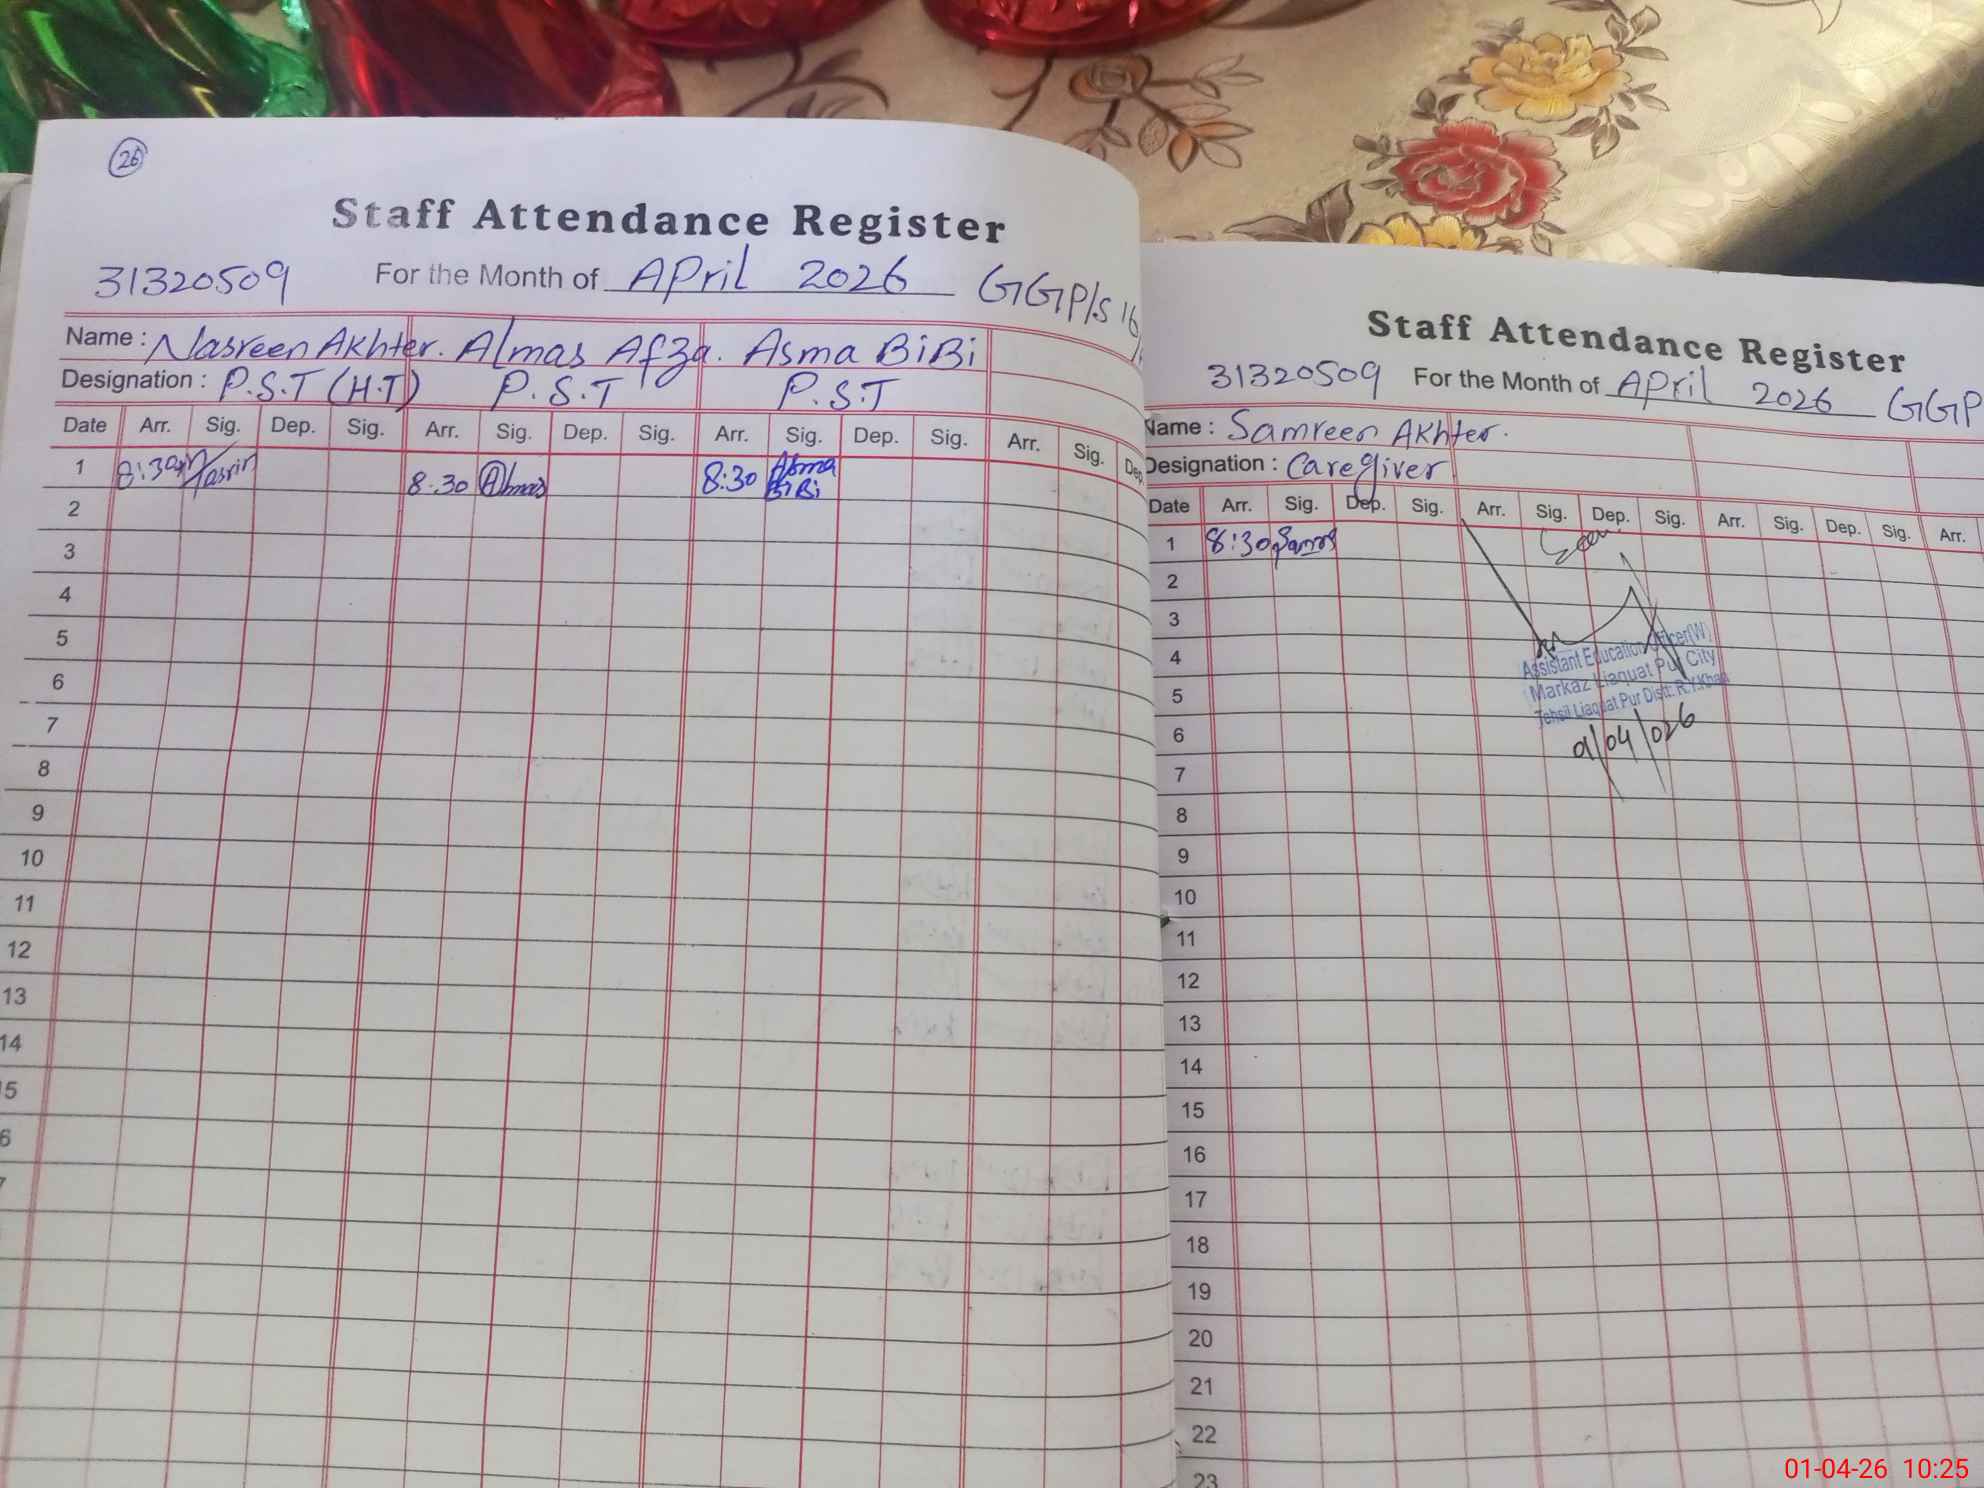 26
Staff Attendance Register
31320509 For the Month of April 2026 GGP/S 16
Name : Nasreen Akhter. Almas Afza. Asma BiBi
Designation : P.S.T (H.T) P.S.T P.S.T
Date Arr. Sig. Dep. Sig. Arr. Sig. Dep. Sig. Arr. Sig. Dep. Sig. Arr. Sig. Dep
1 8:30am Nasrin 8.30 Almas 8:30 Asma BiBi
2
3
4
5
6
7
8
9
10
11
12
13
14
5
6
7
Staff Attendance Register
31320509 For the Month of April 2026 GGP
Name : Samreen Akhter.
Designation : Caregiver
Date Arr. Sig. Dep. Sig. Arr. Sig. Dep. Sig. Arr. Sig. Dep. Sig. Arr.
1 8:30
2
3
4
5
6
7
8
9
10
11
12
13
14
15
16
17
18
19
20
21
22
23
Seen
Assistant Education Officer(W)
Markaz Liaquat Pur City
Tehsil Liaquat Pur Distt. R.Y.Khan
01/04/026
01-04-26 10:25